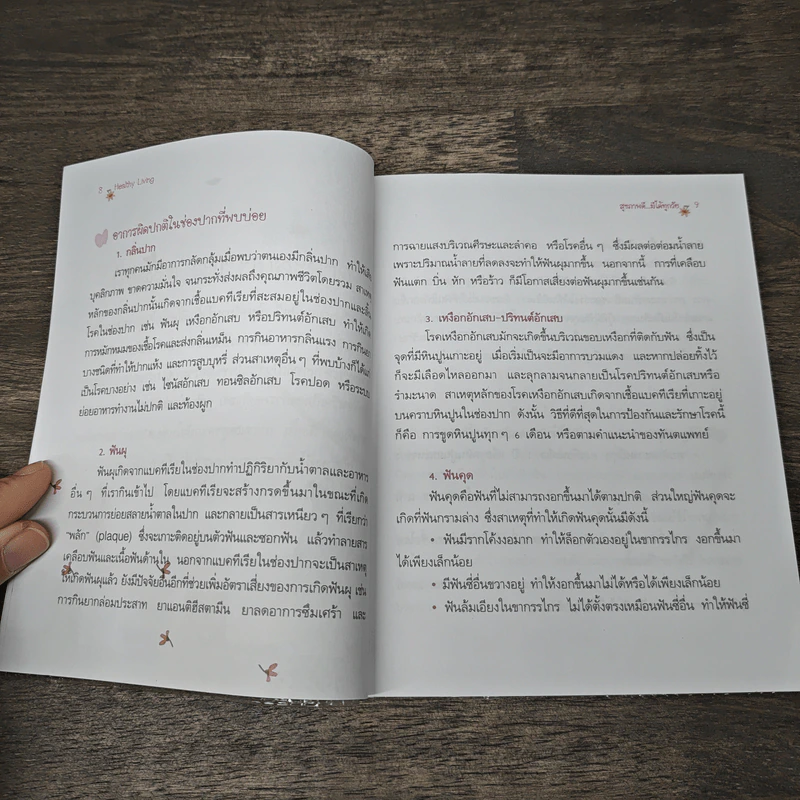 8 Healthy Living
อาการผิดปกติในช่องปากที่พบบ่อย
1. กลิ่นปาก
เราทุกคนมักมีอาการกลัดกลุ้มเมื่อพบว่าตนเองมีกลิ่นปาก ทำให้เสีย
บุคลิกภาพ ขาดความมั่นใจ จนกระทั่งส่งผลถึงคุณภาพชีวิตโดยรวม สาเหตุ
หลักของกลิ่นปากนั้นเกิดจากเชื้อแบคทีเรียที่สะสมอยู่ในช่องปากและลิ้น
โรคในช่องปาก เช่น ฟันผุ เหงือกอักเสบ หรือปริทันต์อักเสบ ทำให้เกิด
การหมักหมมของเชื้อโรคและส่งกลิ่นเหม็น การกินอาหารกลิ่นแรง การกินยา
บางชนิดที่ทำให้ปากแห้ง และการสูบบุหรี่ ส่วนสาเหตุอื่น ๆ ที่พบบ้างก็ได้แก่
เป็นโรคบางอย่าง เช่น ไซนัสอักเสบ ทอนซิลอักเสบ โรคปอด หรือระบบ
ย่อยอาหารทำงานไม่ปกติ และท้องผูก
2. ฟันผุ
ฟันผุเกิดจากแบคทีเรียในช่องปากทำปฏิกิริยากับน้ำตาลและอาหาร
อื่น ๆ ที่เรากินเข้าไป โดยแบคทีเรียจะสร้างกรดขึ้นมาในขณะที่เกิด
กระบวนการย่อยสลายน้ำตาลในปาก และกลายเป็นสารเหนียว ๆ ที่เรียกว่า
"พลัก" (plaque) ซึ่งจะเกาะติดอยู่บนตัวฟันและซอกฟัน แล้วทำลายสาร
เคลือบฟันและเนื้อฟันด้านใน นอกจากแบคทีเรียในช่องปากจะเป็นสาเหตุ
ให้เกิดฟันผุแล้ว ยังมีปัจจัยอื่นอีกที่ช่วยเพิ่มอัตราเสี่ยงของการเกิดฟันผุ เช่น
การกินยากล่อมประสาท ยาแอนติฮีสตามีน ยาลดอาการซึมเศร้า และ
สุขภาพดี...มีได้ทุกวัย 9
การฉายแสงบริเวณศีรษะและลำคอ หรือโรคอื่น ๆ ซึ่งมีผลต่อต่อมน้ำลาย
เพราะปริมาณน้ำลายที่ลดลงจะทำให้ฟันผุมากขึ้น นอกจากนี้ การที่เคลือบ
ฟันแตก บิ่น หัก หรือร้าว ก็มีโอกาสเสี่ยงต่อฟันผุมากขึ้นเช่นกัน
3. เหงือกอักเสบ-ปริทันต์อักเสบ
โรคเหงือกอักเสบมักจะเกิดขึ้นบริเวณขอบเหงือกที่ติดกับฟัน ซึ่งเป็น
จุดที่มีหินปูนเกาะอยู่ เมื่อเริ่มเป็นจะมีอาการบวมแดง และหากปล่อยทิ้งไว้
ก็จะมีเลือดไหลออกมา และลุกลามจนกลายเป็นโรคปริทันต์อักเสบหรือ
รำมะนาด สาเหตุหลักของโรคเหงือกอักเสบเกิดจากเชื้อแบคทีเรียที่เกาะอยู่
บนคราบหินปูนในช่องปาก ดังนั้น วิธีที่ดีที่สุดในการป้องกันและรักษาโรคนี้
ก็คือ การขูดหินปูนทุก ๆ 6 เดือน หรือตามคำแนะนำของทันตแพทย์
4. ฟันคุด
ฟันคุดคือฟันที่ไม่สามารถงอกขึ้นมาได้ตามปกติ ส่วนใหญ่ฟันคุดจะ
เกิดที่ฟันกรามล่าง ซึ่งสาเหตุที่ทำให้เกิดฟันคุดนั้นมีดังนี้
• ฟันมีรากโค้งงอมาก ทำให้ล็อกตัวเองอยู่ในขากรรไกร งอกขึ้นมา
ได้เพียงเล็กน้อย
• มีฟันซี่อื่นขวางอยู่ ทำให้งอกขึ้นมาไม่ได้หรือได้เพียงเล็กน้อย
• ฟันล้มเอียงในขากรรไกร ไม่ได้ตั้งตรงเหมือนฟันซี่อื่น ทำให้ฟันซี่